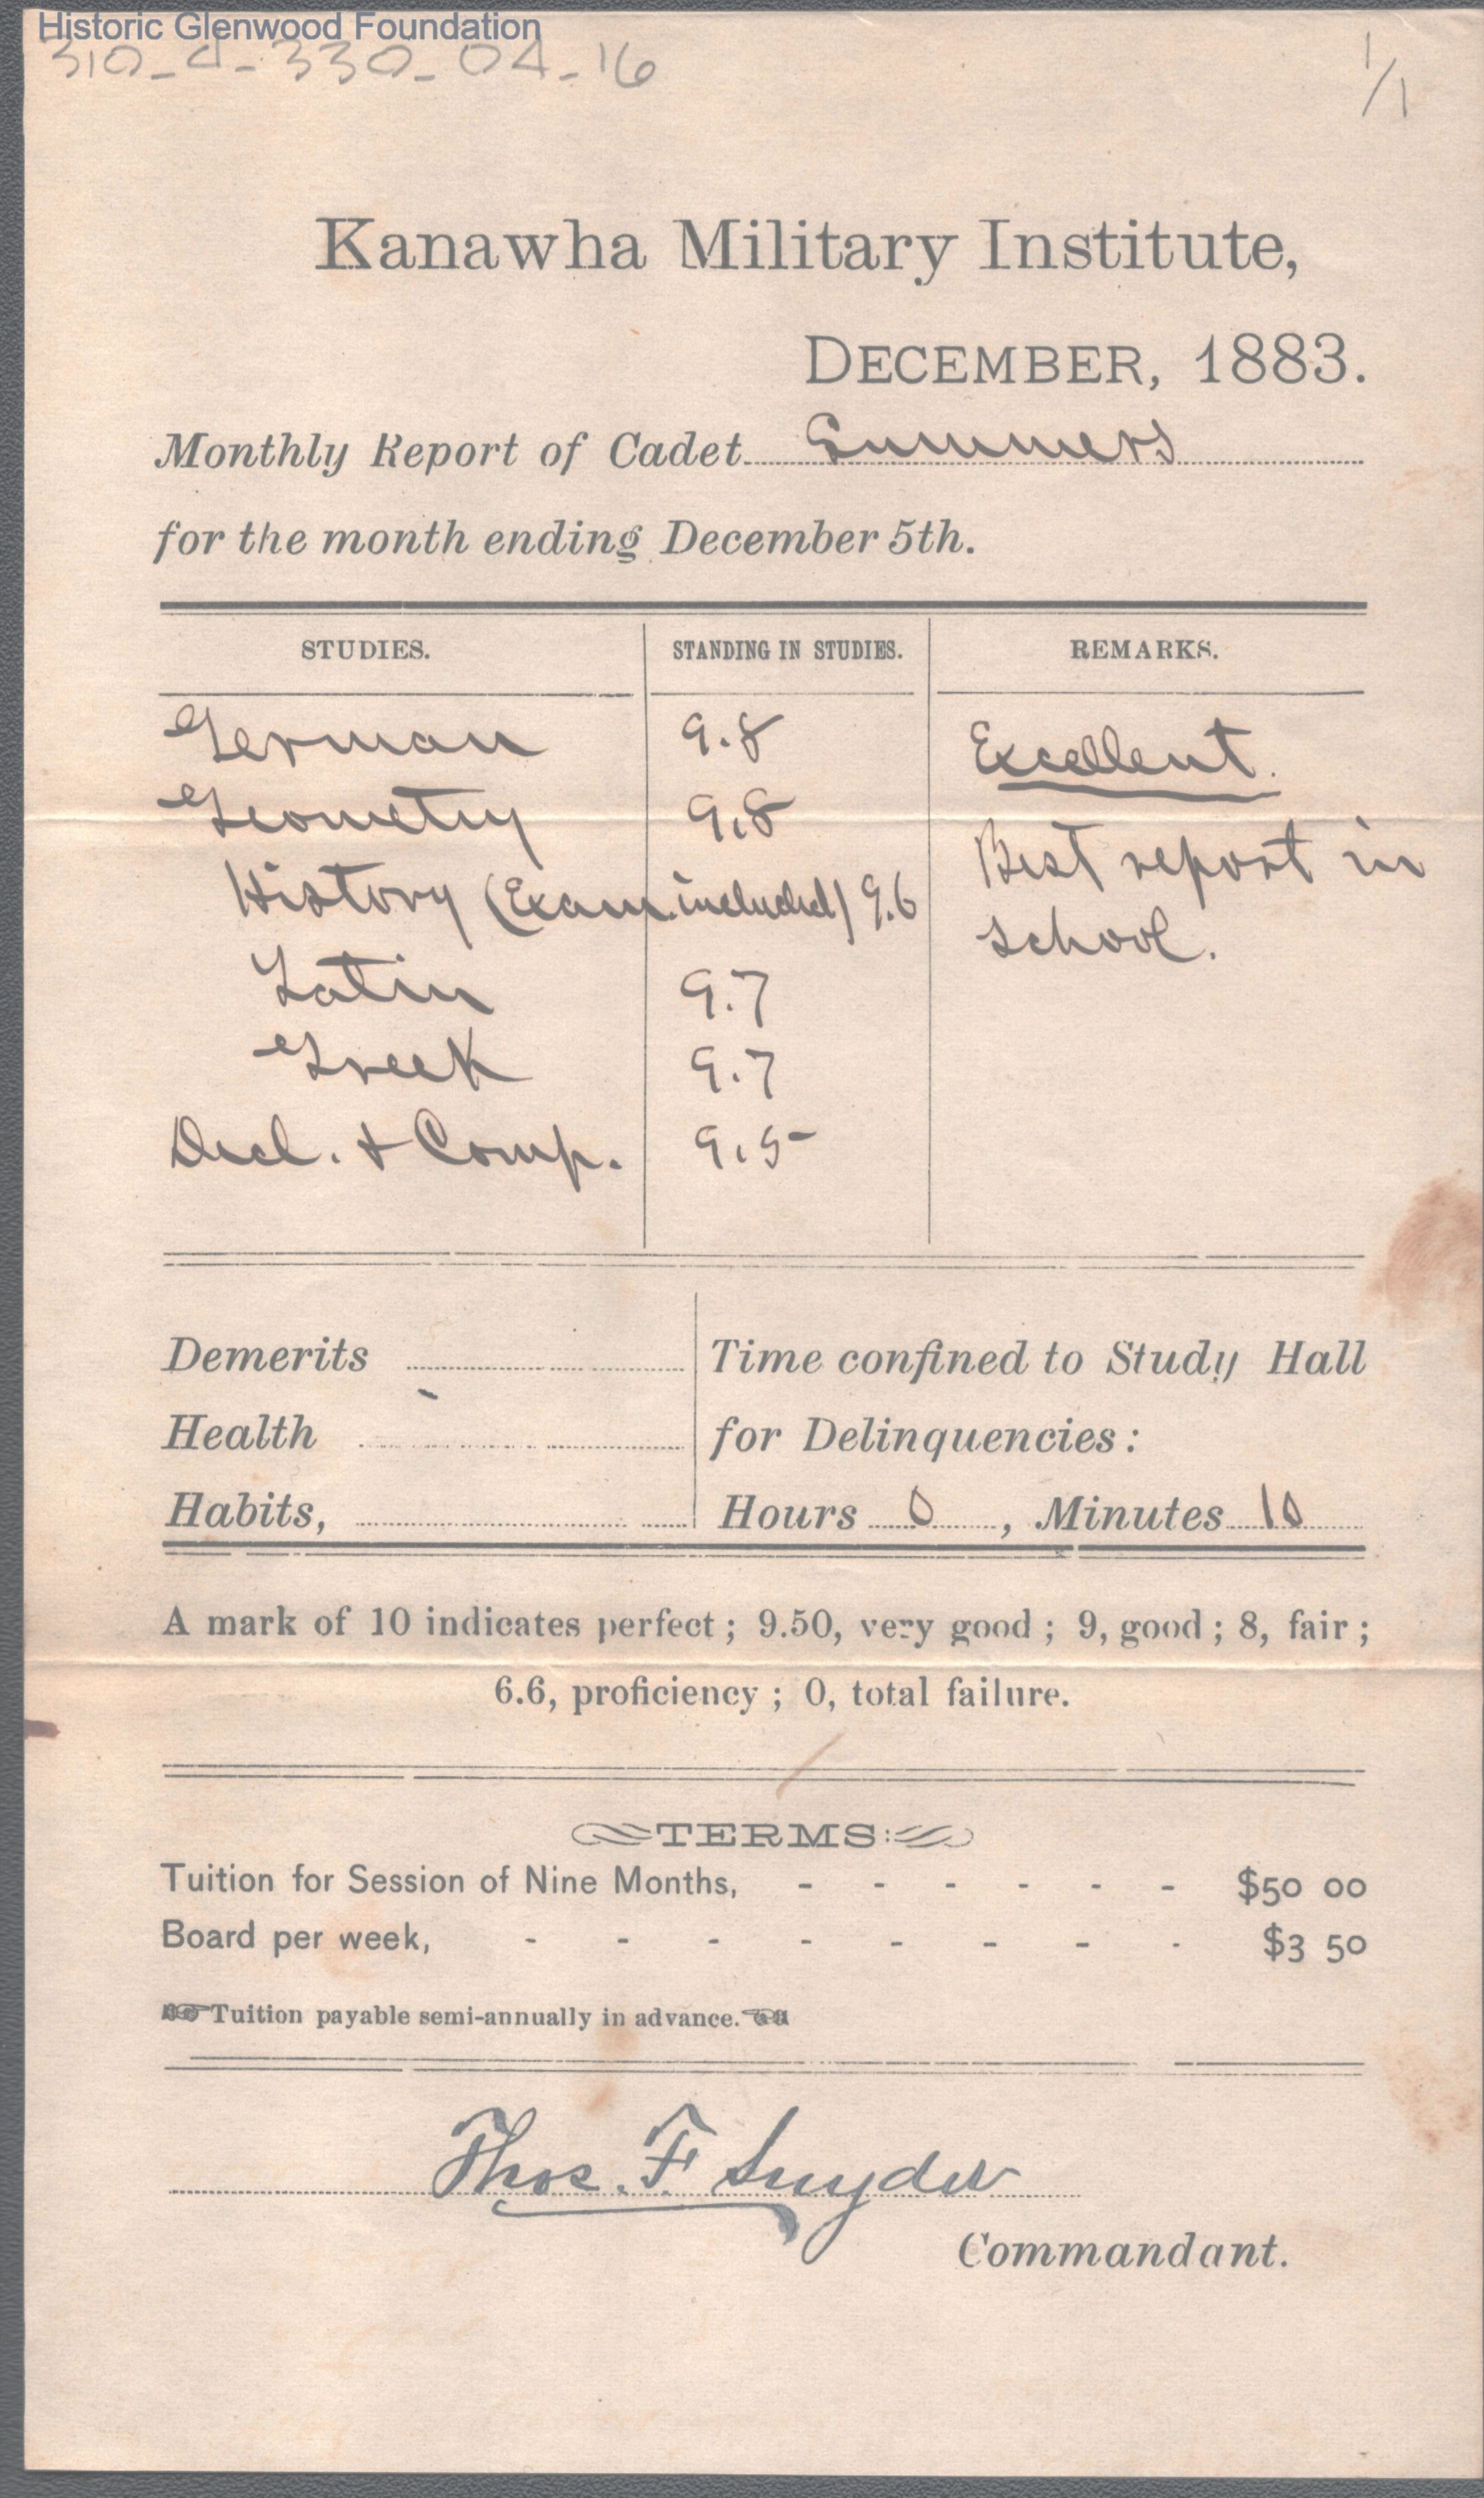 Historic Glenwood Foundation
310-4-330-04-16
1/1
Kanawha Military Institute,
DECEMBER, 1883.
Monthly Report of Cadet Summers
for the month ending December 5th.
STUDIES. STANDING IN STUDIES. REMARKS.
German 9.8 Excellent.
Geometry 9.8 Best report in
History (Exam. included) 9.6 school.
Latin 9.7
Greek 9.7
Decl. & Comp. 9.5
Demerits Time confined to Study Hall
Health for Delinquencies:
Habits, Hours 0, Minutes 10
A mark of 10 indicates perfect; 9.50, very good; 9, good; 8, fair;
6.6, proficiency; 0, total failure.
TERMS:
Tuition for Session of Nine Months, - - - - - - $50 00
Board per week, - - - - - - - - - $3 50
☞Tuition payable semi-annually in advance.☜
Thos. F Snyder
Commandant.